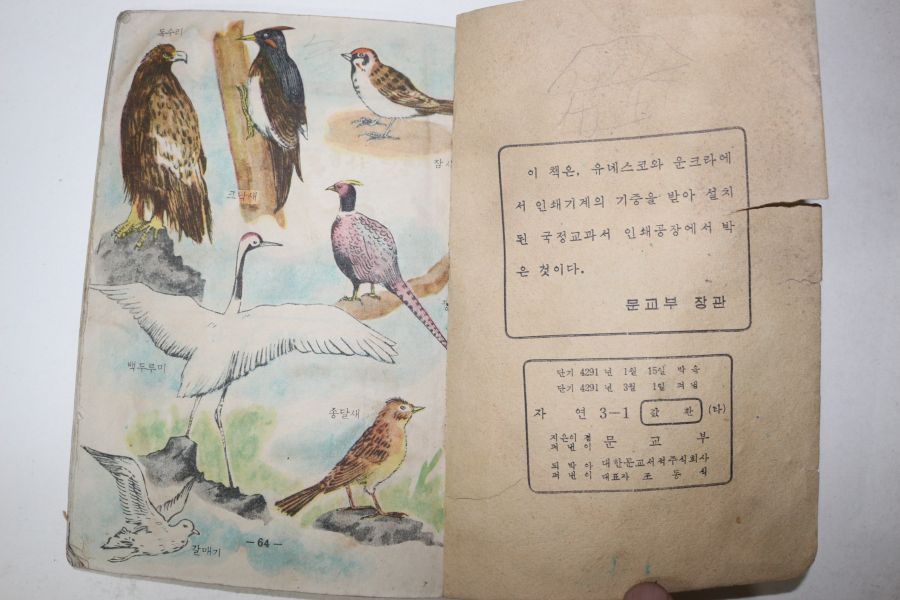 독수리
크낙새
참새
백두루미
종달새
갈매기
— 64 —
이 책은, 유네스코와 운크라에
서 인쇄기계의 기증을 받아 설치
된 국정교과서 인쇄공장에서 박
은 것이다.
문교부 장관
단기 4291 년 1월 15일 박음
단기 4291 년 3월 1일 펴냄
자 연 3—1 값 환 (타)
지은이 겸
펴낸이 문 교 부
되박아
펴낸이 대한문교서적주식회사
대표자 조 동 식